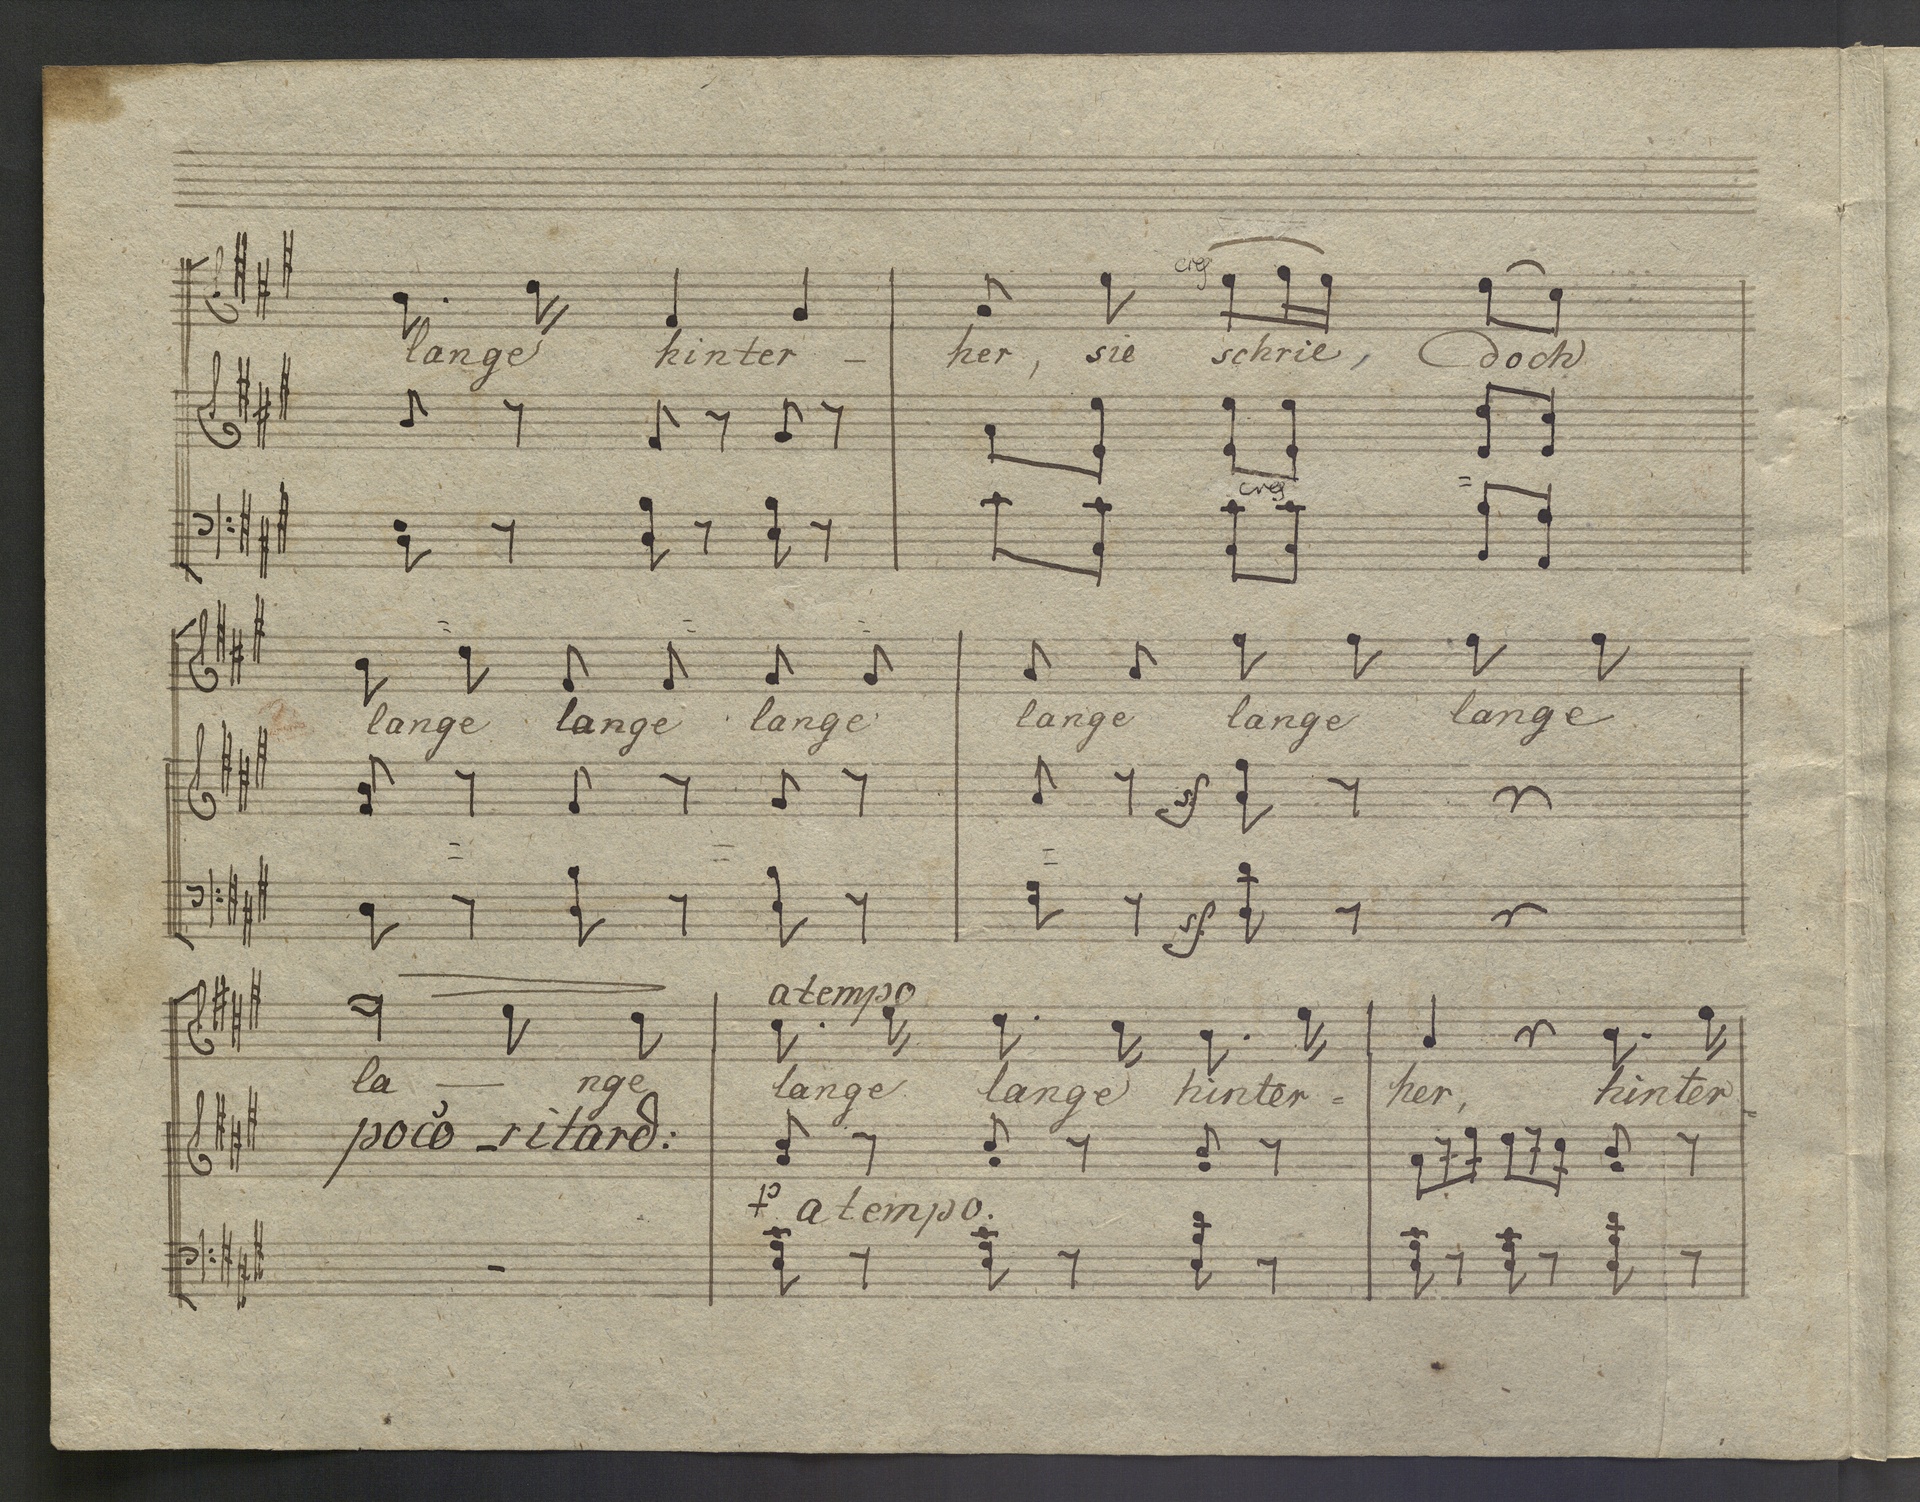 cres
lange hinter - her, sie schrie, doch
cres
lange lange lange lange lange lange
sf
sf.
a tempo
la — nge lange lange hinter - her, hinter -
poco ritard:
p a tempo.